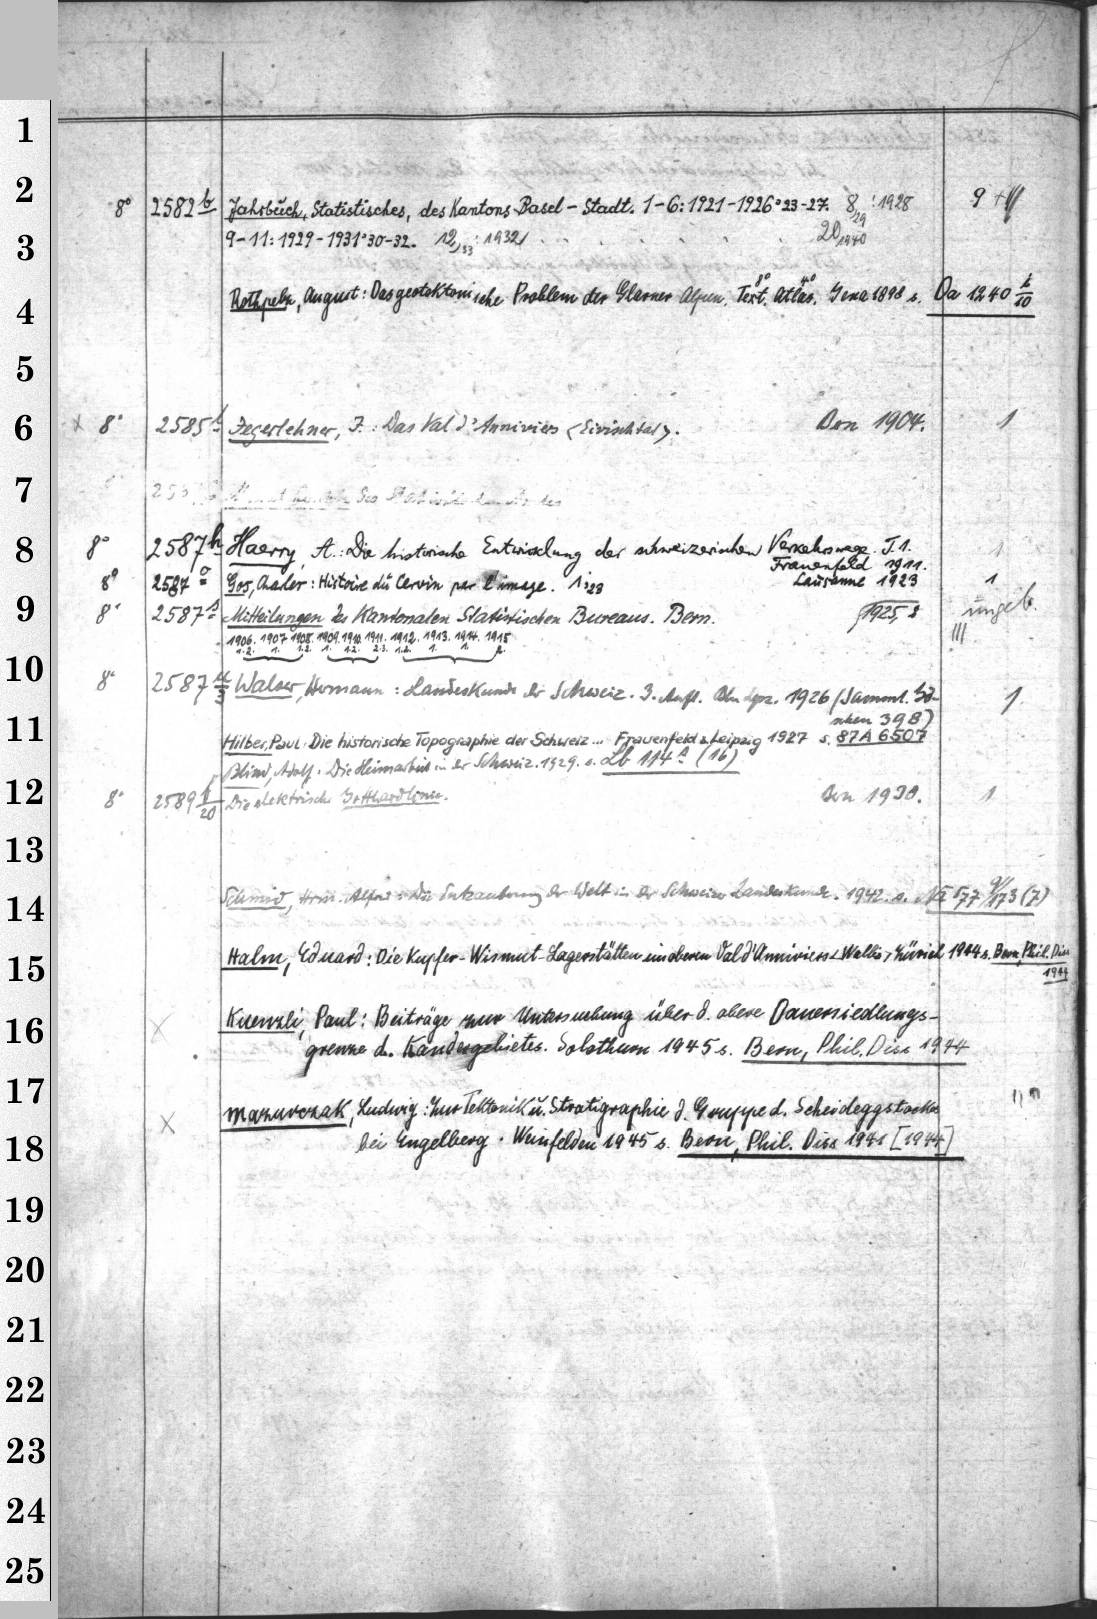 1
2
8° 2582 b Jahrbuch, Statistisches, des Kantons Basel-Stadt. 1-6: 1921-1926°23-27. 8/29: 1928 9 +
3
9-11: 1929-1931°30-32. 12/33: 1932/ 20/1940
4
Rothpelz, August: Das geotektonische Problem der Glarner Alpen. Text 8°. Atlas 4°. Jena 1898 s. Oa 1240 k/10
5
6
x 8° 2585 Jegerlehner, J.: Das Val d'Anniviers <Eivischtal>. Bern 1904. 1
7
des
8
8° 2587 h Haerry, A.: Die historische Entwicklung der schweizerischen Verkehrswege. T. 1. 1
Frauenfeld 1911.
8° 2587 o Gos, Charles: Histoire du Cervin par l'image. 1:23 Lausanne 1923 1
9
8° 2587 s Mitteilungen des Kantonalen Statistischen Bureaus. Bern. 1925, 2 ungeb.
1906. 1907 1908. 1909. 1910. 1911. 1912. 1913. 1914. 1915 III
1.2. 1. 1.2. 1. 1.2. 2.3. 1.2. 1. 1. 2.
10
8° 2587 3 Walser, Hermann: Landeskunde der Schweiz. 3. Aufl. Bln Lpz. 1926 (Samml. Gö- 1
schen 398)
11
Hilber, Paul: Die historische Topographie der Schweiz... Frauenfeld & Leipzig 1927 s. 87A6507
Blind, Adolf: Die Heimarbeit in der Schweiz. 1929. s. Lb 114 (16)
12
8° 2589 b/20 Die elektrische Gotthardlinie. Bern 1930. 1
13
14
Schmid, Hans Alfred: Die Entzauberung der Welt in der Schweizer Landeskunde. 1942. s. Na 577 173 (7)
15
Halm, Eduard: Die Kupfer-Wismut-Lagerstätten im oberen Val d'Anniviers <Wallis> Zürich 1944 s. Bern, Phil. Diss
1944
16
x Kuenzli, Paul: Beiträge zur Untersuchung über d. obere Dauersiedlungs-
grenze d. Kandergebietes. Solothurn 1945 s. Bern, Phil. Diss 1944
17
Mazurczak, Ludwig: Zur Tektonik u. Stratigraphie d. Gruppe d. Scheideggstocks
18
x bei Engelberg. Weinfelden 1945 s. Bern, Phil. Diss 1941 [1944]
19
20
21
22
23
24
25